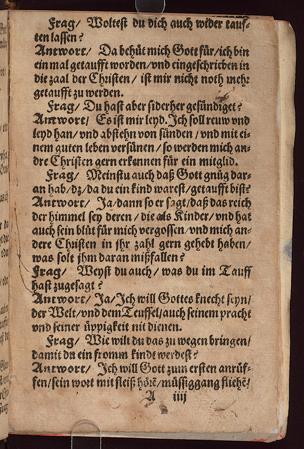 Frag/ Woltest du dich auch wider tauf-
ten lassen?
Antwort/ Da behüt mich Gott für/ich bin
ein mal getaufft worden/vnd eingeschriben in
die zaal der Christen/ ist mir nicht noth mehr
getaufft zu werden.
Frag/ Du hast aber siderher gesündiget?
Antwort/ Es ist mir leyd. Ich soll reuw vnd
leyd han/ vnd abstehn von sünden/ vnd mit ei-
nem guten leben versünen/ so werden mich an-
dre Christen gern erkennen für ein mitglid.
Frag/ Meinstu auch daß Gott gnüg dar-
an hab/ dz/ da du ein kind warest/getaufft bist?
Antwort/ Ja/dann so er sagt/daß das reich
der himmel sey deren/ die als Kinder/ vnd hat
auch sein blüt für mich vergossen/ vnd mich an-
dere Christen in jhr zahl gern gehebt haben/
was solt jhm daran mißfallen?
Frag/ Weyst du auch/ was du im Tauff
hast zugesagt?
Antwort/ Ja/Ich will Gottes knecht seyn/
der Welt/vnd dem Teuffel/auch seinem pracht
vnd seiner üppigkeit nit dienen.
Frag/ Wie wilt du das zu wegen bringen/
damit du ein fromm kindt werdest?
Antwort/ Ich will Gott zum ersten anrüf-
fen/sein wort mit fleiß hörē/müssiggang fliehē/
A iiij